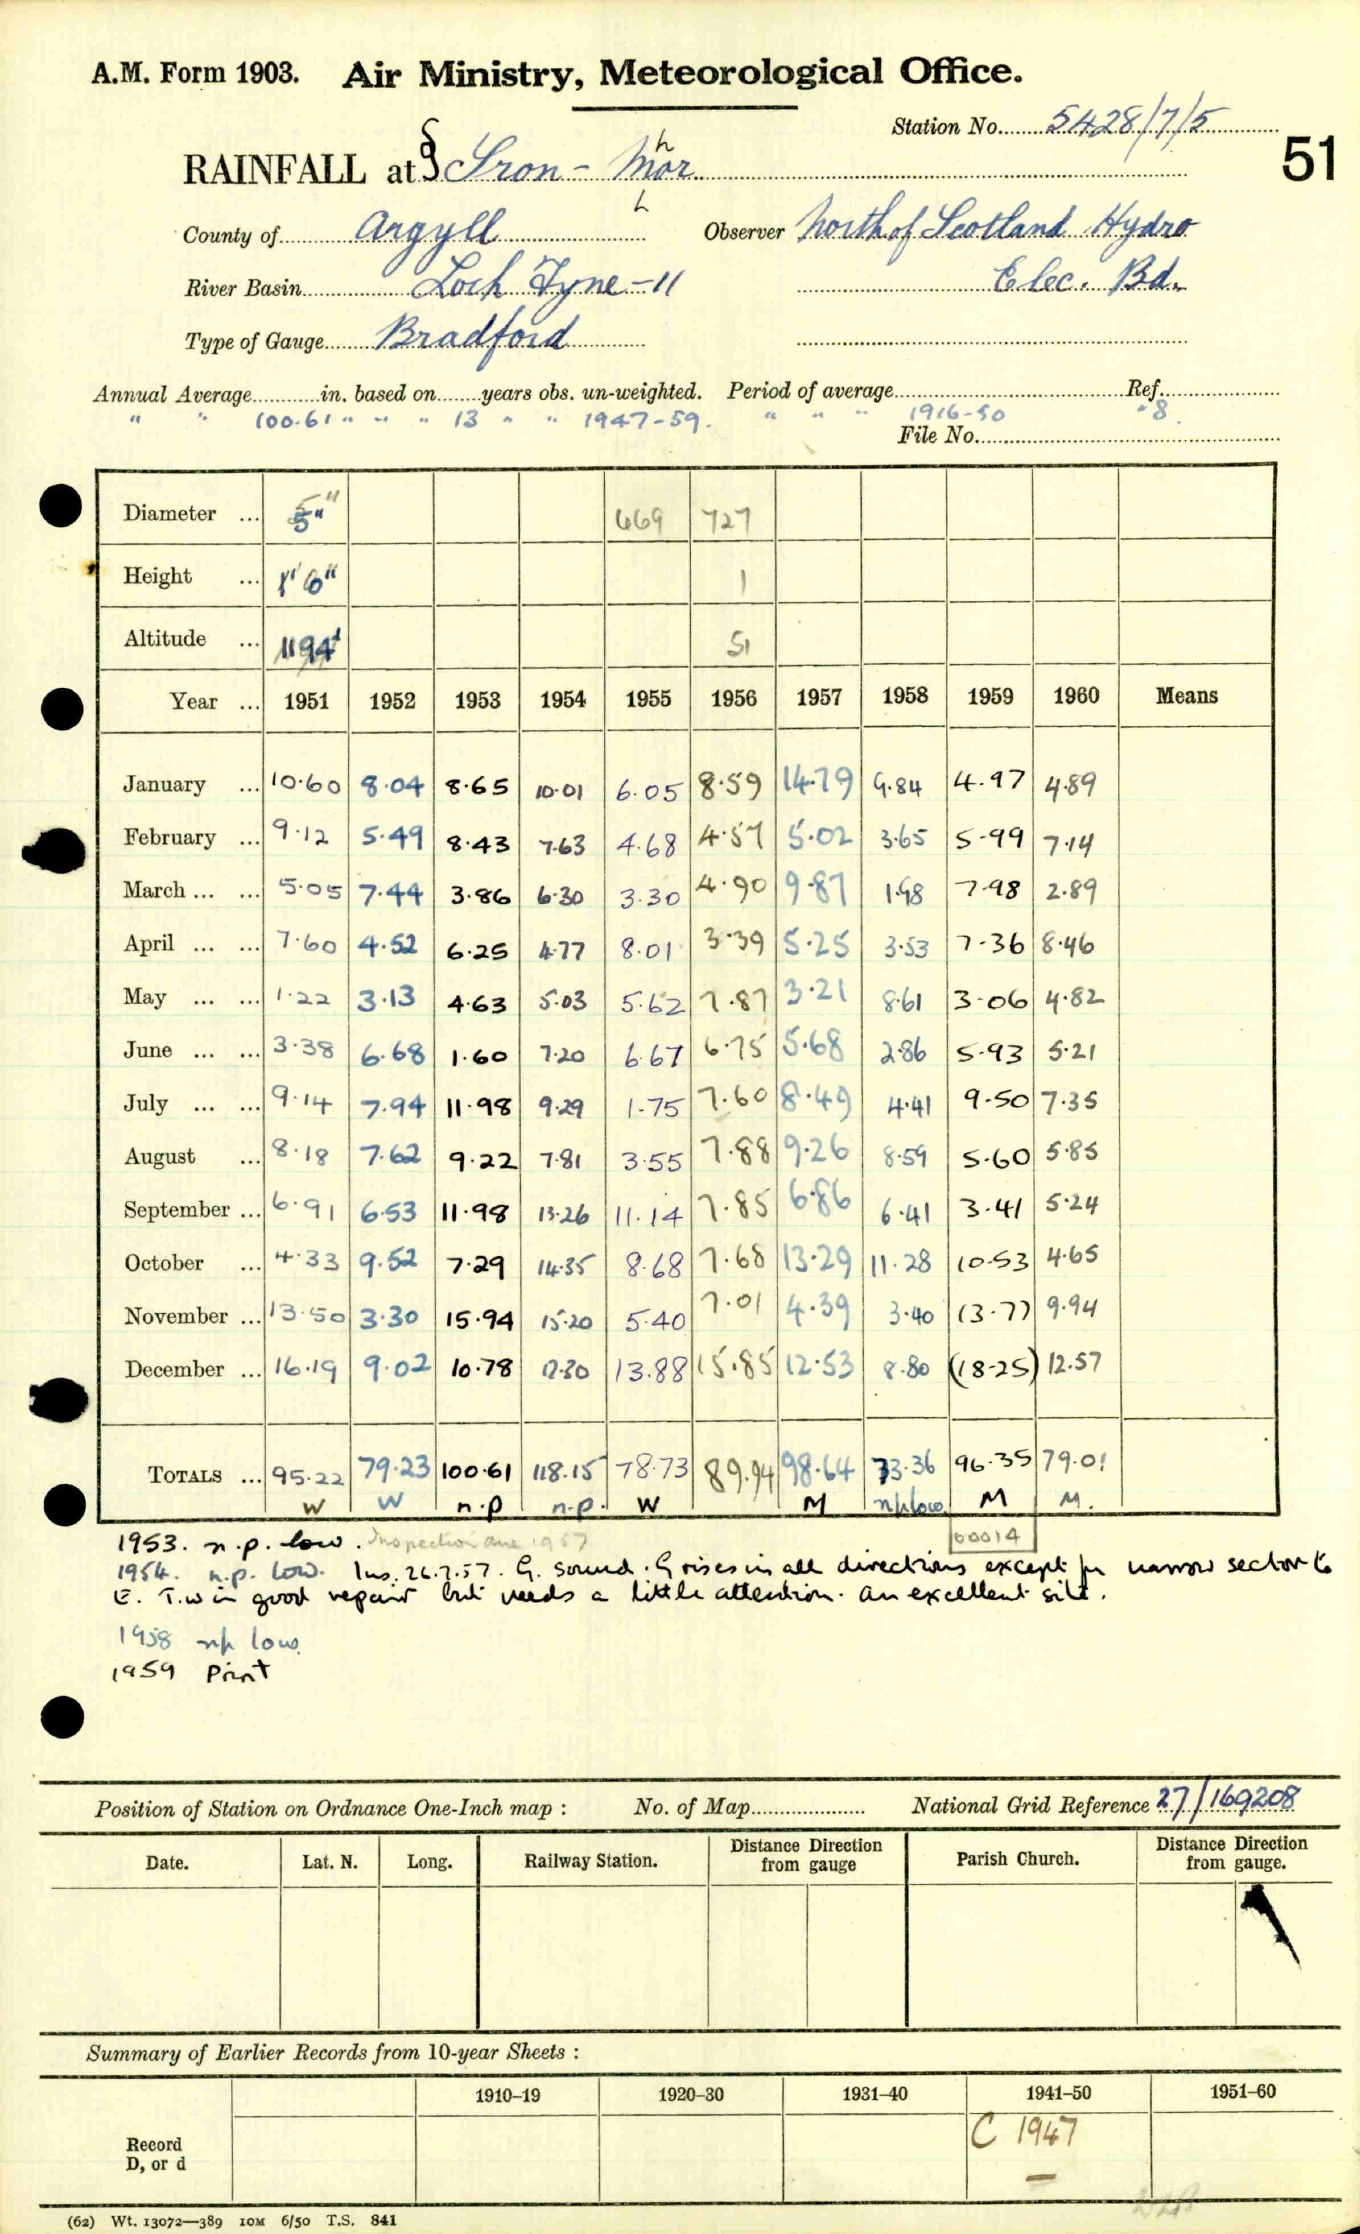 A.M. Form 1903. Air Ministry, Meteorological Office.
Station No. 5428/7/5
51
RAINFALL at § Sron - Mor
h
County of Argyll Observer North of Scotland Hydro
River Basin Loch Fyne - 11 Elec. Bd.
Type of Gauge Bradford
Annual Average in. based on years obs. un-weighted. Period of average Ref.
" " 100.61 " " " 13 " " 1947-59. " " " 1916-50 " 8.
File No.
Diameter ... 5" 669 727
Height ... 1' 0" 1
Altitude ... 1194' 51
Year ... 1951 1952 1953 1954 1955 1956 1957 1958 1959 1960 Means
January ... 10.60 8.04 8.65 10.01 6.05 8.59 14.79 9.84 4.97 4.89
February ... 9.12 5.49 8.43 7.63 4.68 4.57 5.02 3.65 5.99 7.14
March ... ... 5.05 7.44 3.86 6.30 3.30 4.90 9.87 1.98 7.98 2.89
April ... ... 7.60 4.52 6.25 4.77 8.01 3.39 5.25 3.53 7.36 8.46
May ... ... 1.22 3.13 4.63 5.03 5.62 7.87 3.21 8.61 3.06 4.82
June ... ... 3.38 6.68 1.60 7.20 6.67 6.75 5.68 2.86 5.93 5.21
July ... ... 9.14 7.94 11.98 9.29 1.75 7.60 8.49 4.41 9.50 7.35
August ... 8.18 7.62 9.22 7.81 3.55 7.88 9.26 8.59 5.60 5.85
September ... 6.91 6.53 11.98 13.26 11.14 7.85 6.86 6.41 3.41 5.24
October ... 4.33 9.52 7.29 14.35 8.68 7.68 13.29 11.28 10.53 4.65
November ... 13.50 3.30 15.94 15.20 5.40 7.01 4.39 3.40 (3.77) 9.94
December ... 16.19 9.02 10.78 17.30 13.88 15.85 12.53 8.80 (18.25) 12.57
TOTALS ... 95.22 79.23 100.61 118.15 78.73 89.94 98.64 73.36 96.35 79.01
W W n.p n.p. W M np low M M.
1953. n.p. low. Inspection due 1957 60014
1954. n.p. low. Ins. 26.7.57. G. sound. G rises in all directions except for narrow sector to
E. T.W in good repair but needs a little attention. An excellent site.
1958 np low.
1959 Print
Position of Station on Ordnance One-Inch map : No. of Map National Grid Reference 27/169208
Date. Lat. N. Long. Railway Station. Distance Direction from gauge Parish Church. Distance Direction from gauge.
Summary of Earlier Records from 10-year Sheets :
1910–19 1920–30 1931–40 1941–50 1951–60
Record D, or d C 1947
(62) Wt. 13072—389 10M 6/50 T.S. 841